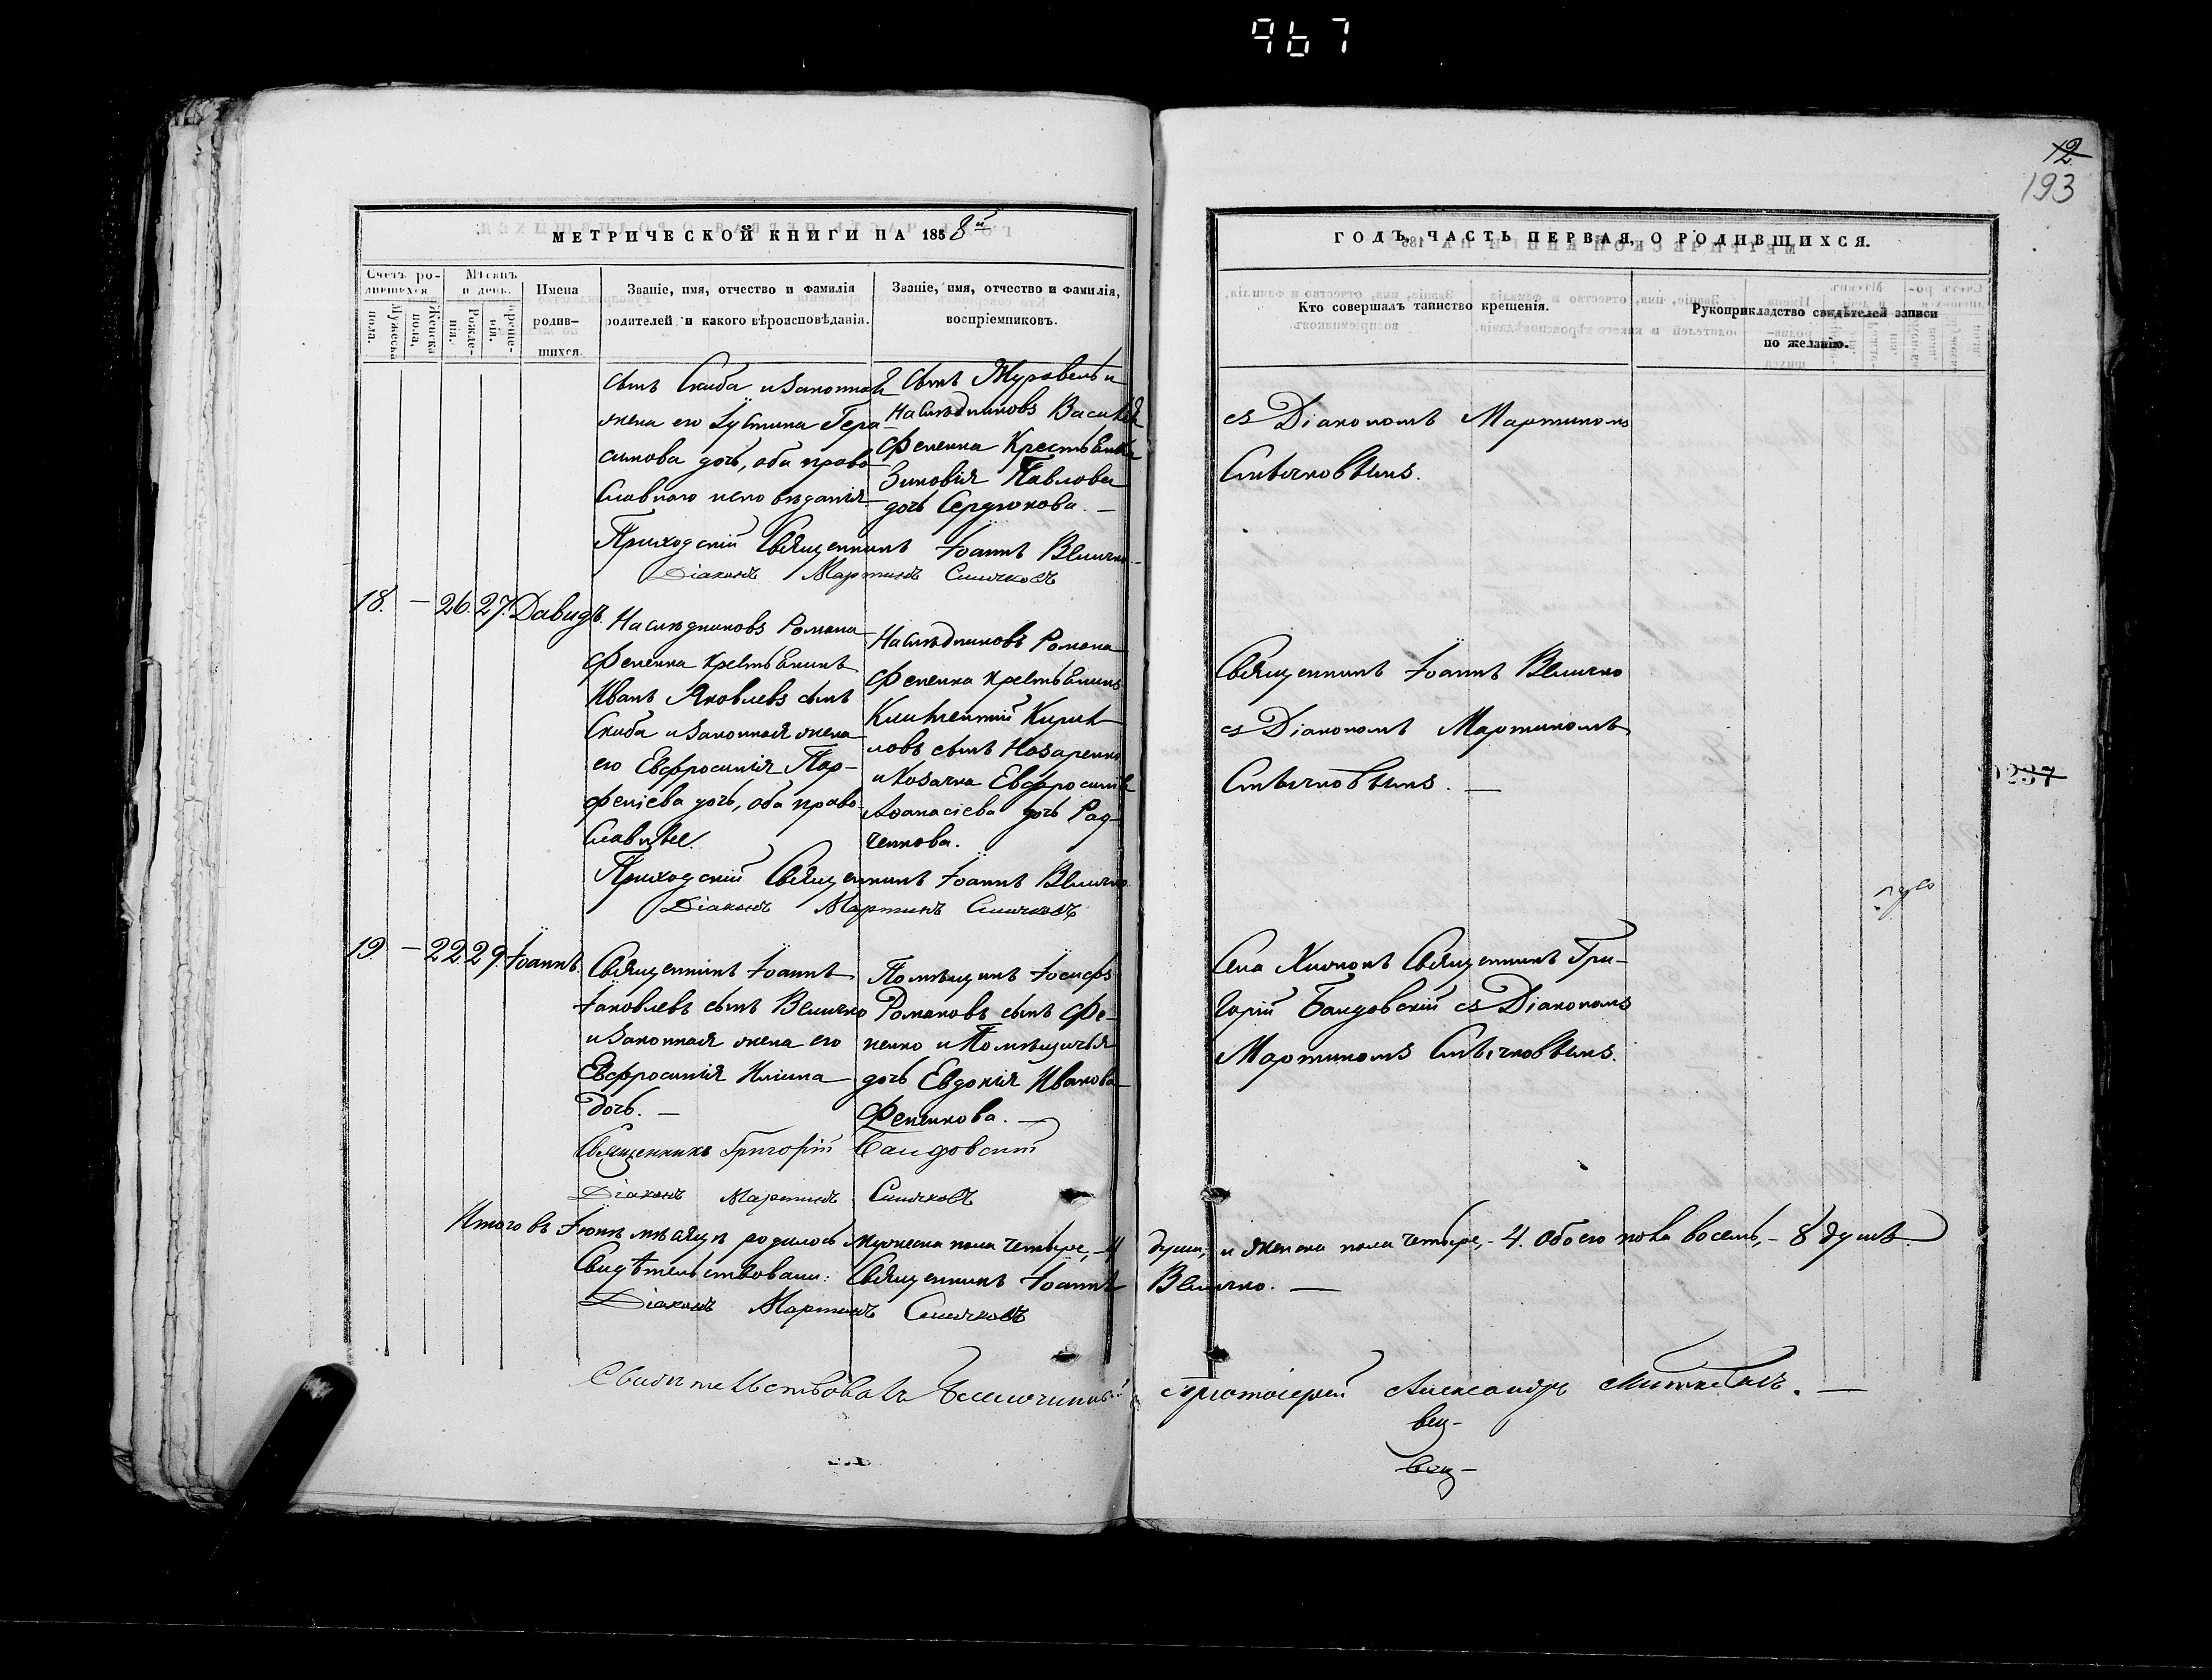 967
12
193
МЕТРИЧЕСКОЙ КНИГИ НА 1858й
ГОДЪ, ЧАСТЬ ПЕРВАЯ, О РОДИВШИХСЯ.
Счетъ родившихся
Мѣсяцъ и день.
Имена родившихся.
Званіе, имя, отчество и фамилія родителей и какого вѣроисповѣданія.
Званіе, имя, отчество и фамилія, воспріемниковъ.
Мужеска пола.
Женска пола.
Рожденія.
Крещенія.
Кто совершалъ таинство крещенія.
Рукоприкладство свидѣтелей записи по желанію.
сынъ Скиба и законная
жена его Іустина Гера-
симова дочь, оба право-
славного исповѣданія.
сынъ Журавель и
наслѣдниковъ Василія
Фененка крестьянка
Зиновія Павлова
дочь Сердюкова. —
съ Діакономъ Мартиномъ
Слѣичковымъ.
Приходскій Священникъ Іоаннъ Величко.
Діаконъ Мартинъ
18. — 26. 27. Давидъ.
Наслѣдниковъ Романа
Фененка крестьянинъ
Иванъ Яковлевъ сынъ
Скиба и законная жена
его Евфросинія Пар-
феніева дочь, оба право-
славные.
Наслѣдниковъ Романа
Фененка крестьянинъ
Климентій Кирил-
ловъ сынъ Назаренко
и козачка Евфросинія
Аѳанасіева дочь Рад-
ченкова.
Священникъ Іоаннъ Величко
съ Діакономъ Мартиномъ
Приходскій Священникъ Іоаннъ Величко.
Діаконъ Мартинъ
237
19. — 22. 29. Іоаннъ.
Священникъ Іоаннъ
Іаковлевъ сынъ Величко
и законная жена его
Евфросинія Иліина
дочь. —
Помѣщикъ Іосифъ
Романовъ сынъ Фе-
ненко и помѣщичья
дочь Евдокія Иванова
Фененкова. —
Села Священникъ Гри-
горій съ Діакономъ
Мартиномъ
Священникъ Григорій
Діаконъ Мартинъ
Итого въ Іюнѣ мѣсяцѣ родилось мужеска пола четыре, — 4 души, и женска пола четыре, — 4. Обоего пола восемь, — 8 душъ.
Свидѣтельствовали: Священникъ Іоаннъ Величко. —
Діаконъ Мартинъ
Свидѣтельствовалъ Протоіерей Александръ